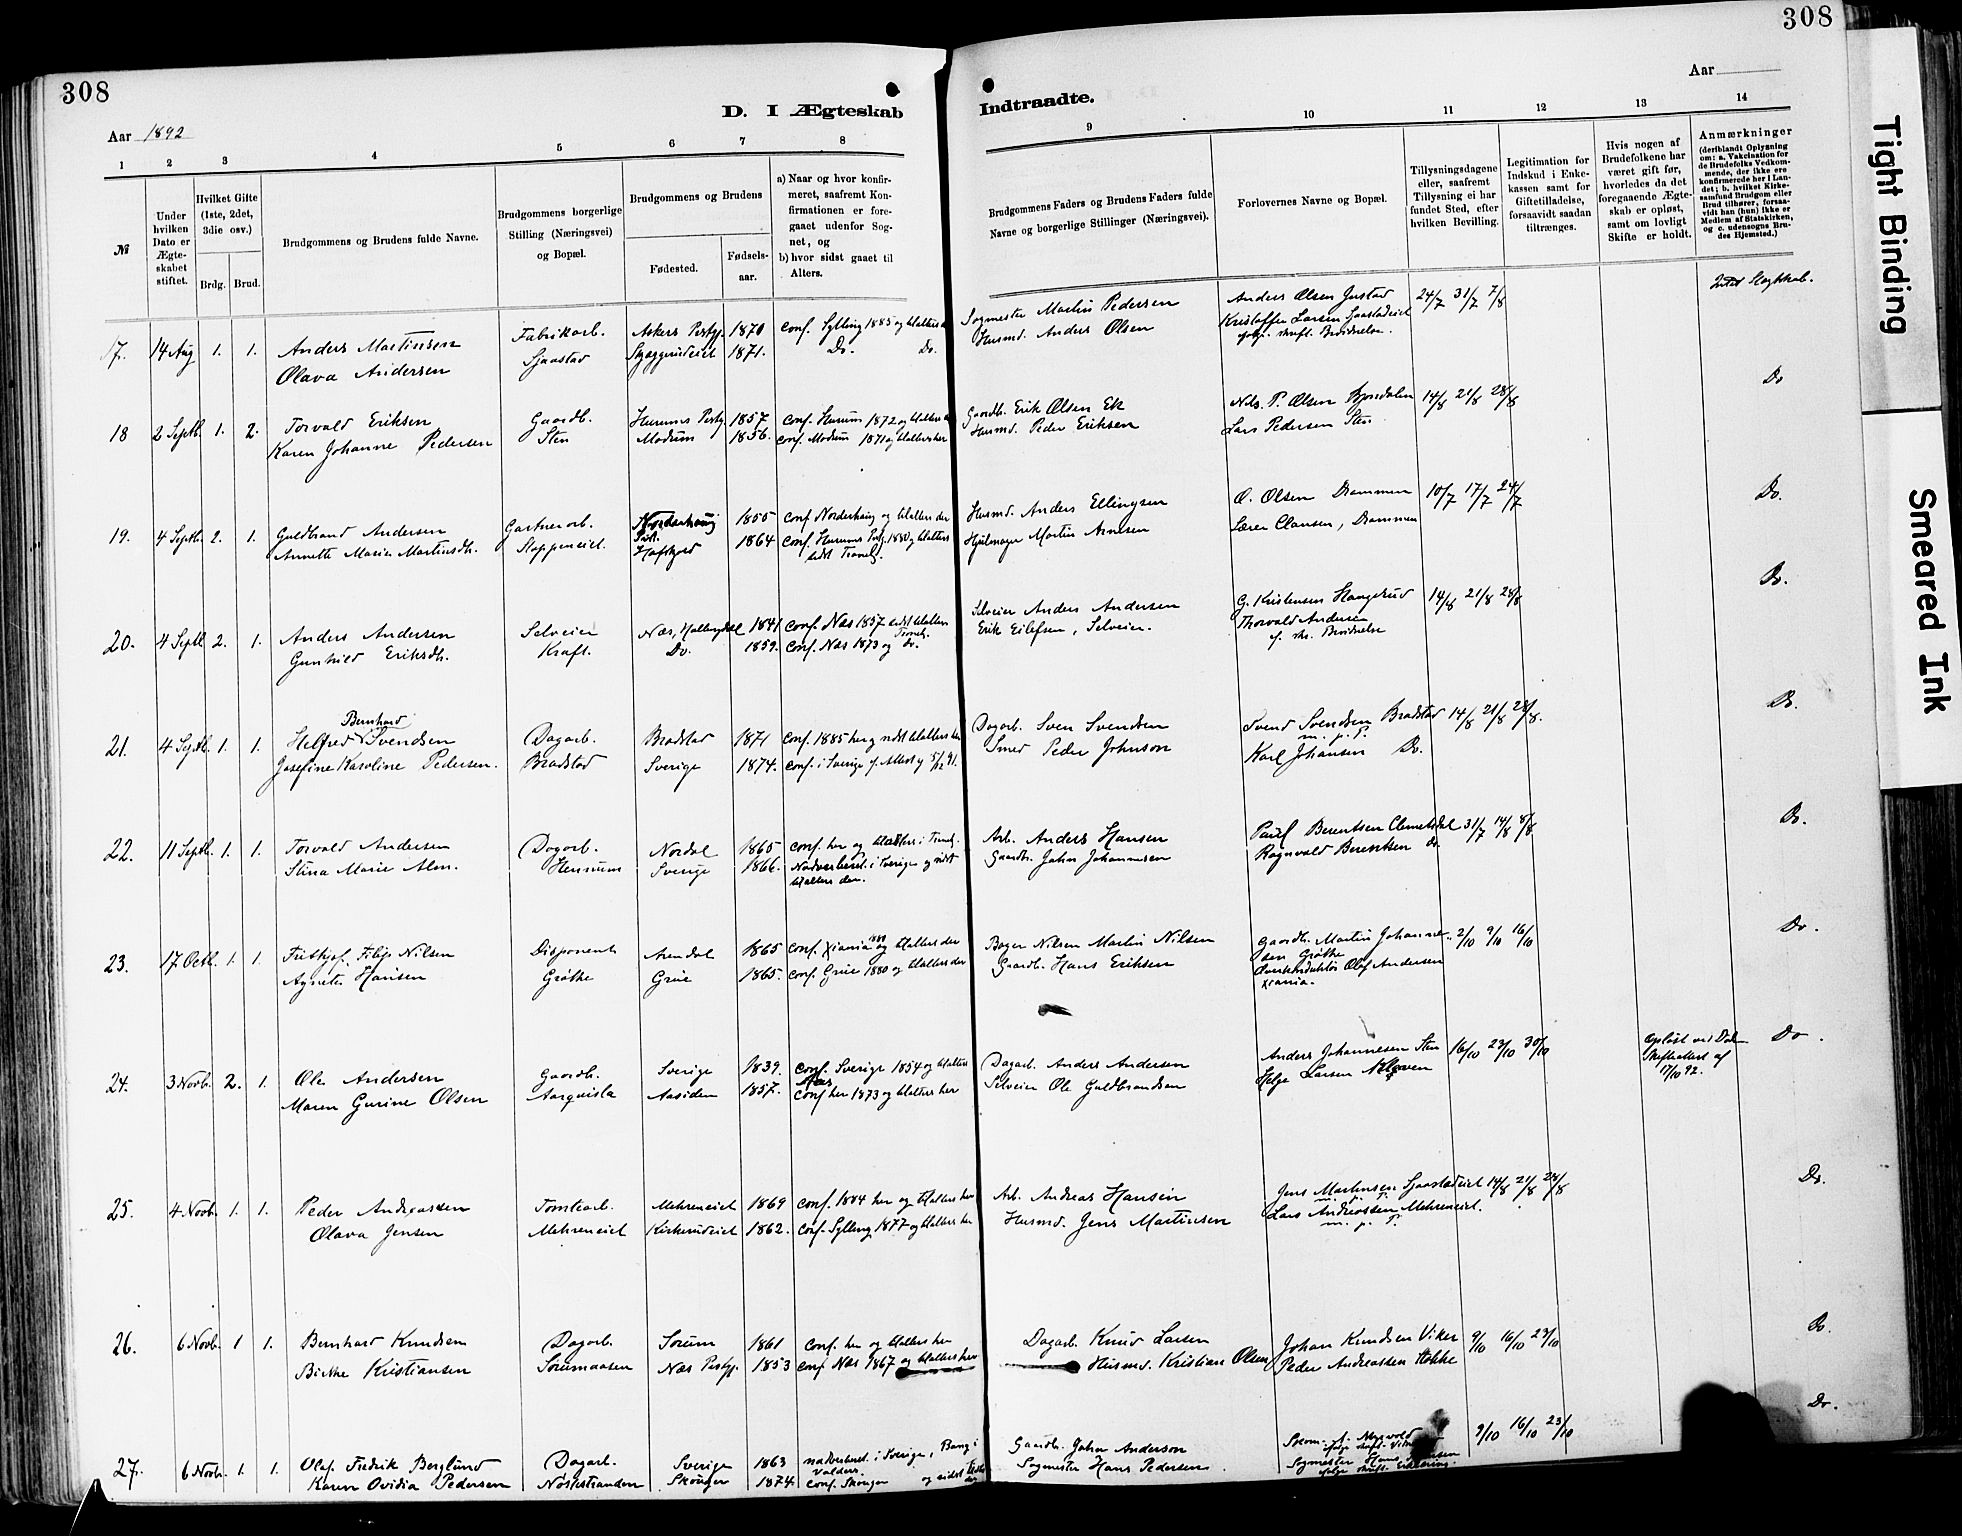 308
308
Aar
D. I Ægteskab
Indtraadte.
Aar 1892
1 2 3 4 5 6 7 8 9 10 11 12 13 14
№
Under hvilken Dato er Ægteskabet stiftet.
Hvilket Gifte (1ste, 2det, 3die osv.)
Brdg. Brud.
Brudgommens og Brudens fulde Navne.
Brudgommens borgerlige Stilling (Næringsvei) og Bopæl.
Brudgommens og Brudens
Fødested.
Fødselsaar.
a) Naar og hvor konfirmeret, saafremt Konfirmationen er foregaaet udenfor Sognet, og
b) hvor sidst gaaet til Alters.
Brudgommens Faders og Brudens Faders fulde Navne og borgerlige Stillinger (Næringsvei).
Forlovernes Navne og Bopæl.
Tillysningsdagene eller, saafremt Tillysning ei har fundet Sted, efter hvilken Bevilling.
Legitimation for Indskud i Enkekassen samt for Giftetilladelse, forsaavidt saadan tiltrænges.
Hvis nogen af Brudefolkene har været gift før, hvorledes da det foregaaende Ægteskab er opløst, samt om lovligt Skifte er holdt.
Anmærkninger
(deriblandt Oplysning om: a. Vakcination for de Brudefolks Vedkommende, der ikke ere konfirmerede her i Landet; b. hvilket Kirkesamfund Brudgom eller Brud tilhører, forsaavidt han (hun) ikke er Medlem af Statskirken, og c. udensogns Brudes Hjemsted.)
17. 14 Aug 1. 1. Anders Martinsen Fabrikarb. Askers Pgj. 1870 conf. Sylling 1885 og tilalters Sogmester Martin Pedersen Anders Olsen Justad 24/7 31/7 7/8 Intet Slægtskab.
Olava Andersen Sjaastad 1871. Do. Do. Husmd. Anders Olsen Kristoffer Larsen Sjaastadeiet
18 2 Septb. 1. 2. Torvald Eriksen Gaardb. Hurums 1857 conf. Hurum 1872 og tilalters Gaardb. Erik Olsen Ek Nels. P. Olsen 14/8 21/8 28/8 Do
Karen Johanne Pedersen Sten Modum 1856. conf. Modum 1871 og tilalters her Husmd. Peder Eriksen Lars Pedersen Sten
19. 4 Septb. 2. 1. Guldbrand Andersen Gartnerarb. Norderhaug 1855 conf Norderhaug og tilalters der Husmd. Anders Ellingsen O. Olsen Drammen 10/7 17/7 24/7 Do.
Annette Marie Martinsdt. Stoppeneiet. 1864 conf. Hurums 1880 og tilalters Hjulmager Martin Arnesen Lærer Clausen, Drammen
sidst Tranby.
20. 4 Septb 2. 1. Anders Andersen Selveier Næs, Hallingdal 1841 conf. Næs 1857 sidst tilalters Selveier Anders Andersen G. Kristensen Haugerud 14/8 21/8 28/8 Do.
Gunhild Eriksdt. Kraft. Do. 1859. conf. Næs 1873 og do. Erik Eilefsen, Selveier. Thorvald Andersen
21. 4 Septb. 1. 1. Helfred Bernhard Svendsen Dagarb. Bradstad 1871 conf. 1885 her og sidst tilalters her Dagarb. Sven Svendsen Svend Svendsen Bradstad 14/8 21/8 28/8. Do.
m. p. P.
Josefine Karoline Pedersen. Bradstad Sverige 1874. conf. i Sverige Smed Peder Johnson Karl Johansen Do.
22. 11 Septb. 1. 1. Torvald Andersen Dagarb. Nordal 1865 conf. her og tilalters i Tranby. Arb. Anders Hansen Paul Berentsen Clemetsdal 31/7 14/8 Do.
Stina Marie Alm. Hennum Sverige 1866. Nadverberet. i Sverige og sidst Gaardb. Johan Johannesen Ragnvald Berentsen do.
tilalters der.
23. 17 Octb. 1. 1. Frithjof Filip Nilsen Disponent Arendal 1865 conf. Xiania 1880 og tilalters der Bager Nilsen Martin Nilsen Gaardb. Martin Johannesen Grøtke 2/10 9/10 16/10 Do.
Agnete Hansen Grøtke Grue 1865. conf. Grue 1880 og tilalters der Gaardb. Hans Eriksen Overkonduktør Olaf Andersen Xiania.
24. 3 Novb. 2. 1. Ole Andersen Gaardb. Sverige 1839. conf. Sverige 1854 og tilalters Dagarb. Anders Andersen Anders Johannesen Sten 16/10 23/10 30/10 Opløst ved Død Skifteattest af 17/10 92. Do.
Maren Gurine Olsen Aarquisla Aasiden 1857. conf her 1873 og tilalters her Selveier Ole Guldbrandsen Helge Larsen
25. 4 Novb. 1. 1. Peder Andreassen Tomtearb. Mehreneiet 1869 conf. 1884 her og tilalters her Arb. Andreas Hansen Jens Martinsen Sjaastadeiet 14/8 21/8 28/8 Do.
Olava Jensen Mehreneiet Kirkerudeiet 1862. conf. Sylling 1877 og tilalters her Husmd. Jens Martinsen Lars Andreassen Mehreneiet.
m. p. P.
26. 6 Novb. 1 1. Bernhard Knudsen Dagarb. Sørum 1861 conf. her og tilalters her Dagarb. Knud Larsen Johan Knudsen Viker 9/10 16/10 23/10 Do.
Birthe Kristiansen Sørumaasen Næs 1853 conf Næs 1867 og tilalters her Husmd. Kristian Olsen Peder Andreassen Stokke
27. 6 Novb. 1. 1. Olaf Fredrik Berglund Dagarb. Sverige 1863 nadverberet. i Sverige, Gaardb. Johan Anderson 9/10 16/10 23/10 Do.
Karen Ovidia Pedersen Nøstestranden Skouger 1874. conf. Skouger og sidst Sogmester Hans Pedersen. Sogmester Hans
Tight Binding
Smeared Ink